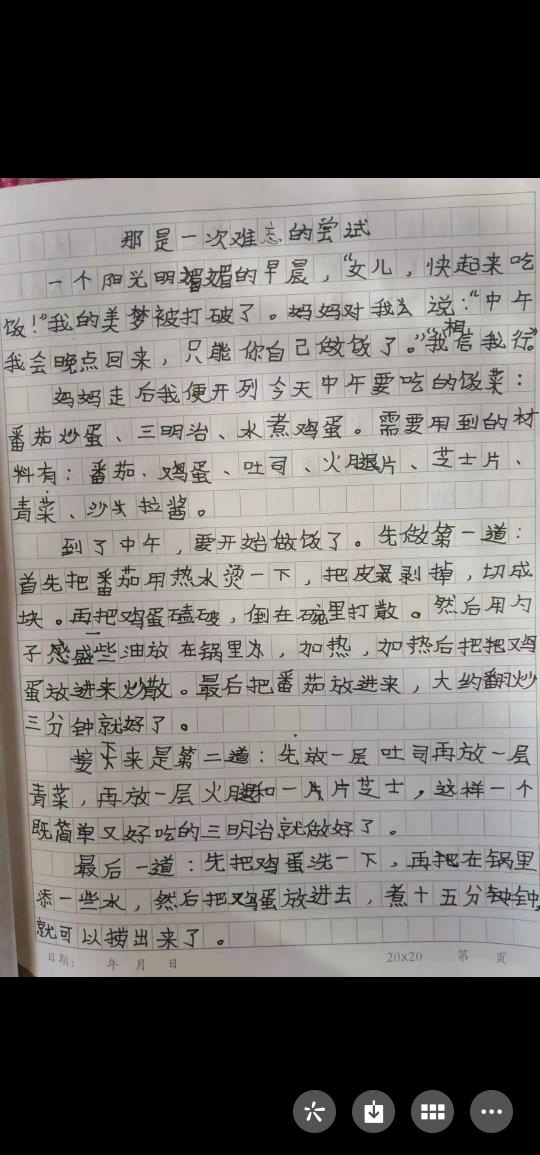 那是一次难忘的尝试
一个阳光明媚的早晨，“女儿，快起来吃
饭！”我的美梦被打破了。妈妈对我说：“中午
我会晚点回来，只能你自己做饭了。”“我相信我行。”
妈妈走后我便开列今天中午要吃的饭菜：
番茄炒蛋、三明治、水煮鸡蛋。需要用到的材
料有：番茄、鸡蛋、吐司、火腿片、芝士片、
青菜、沙拉酱。
到了中午，要开始做饭了。先做第一道：
首先把番茄用热水烫一下，把皮剥掉，切成
块。再把鸡蛋磕破，倒在碗里打散。然后用勺
子盛一些油放在锅里，加热，加热后把鸡
蛋放进来炒散。最后把番茄放进来，大约翻炒
三分钟就好了。
接下来是第二道：先放一层吐司再放一层
青菜，再放一层火腿和一片芝士，这样一个
既简单又好吃的三明治就做好了。
最后一道：先把鸡蛋洗一下，再在锅里
添一些水，然后把鸡蛋放进去，煮十五分钟，
就可以捞出来了。
日期： 年 月 日 20×20 第 页